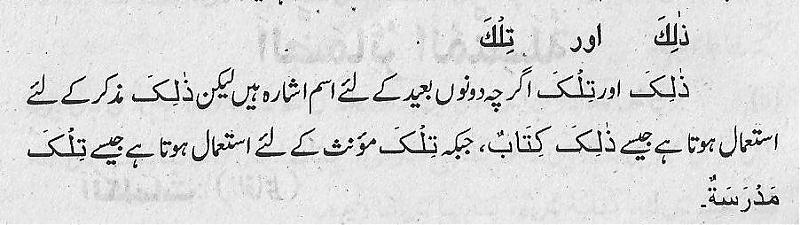 ذٰلِكَ اور تِلْكَ
ذٰلِكَ اور تِلْكَ اگرچہ دونوں بعید کے لئے اسم اشارہ ہیں لیکن ذٰلِكَ مذکر کے لئے
استعمال ہوتا ہے جیسے ذٰلِكَ كِتَابٌ، جبکہ تِلْكَ مؤنث کے لئے استعمال ہوتا ہے جیسے تِلْكَ
مَدْرَسَةٌ۔